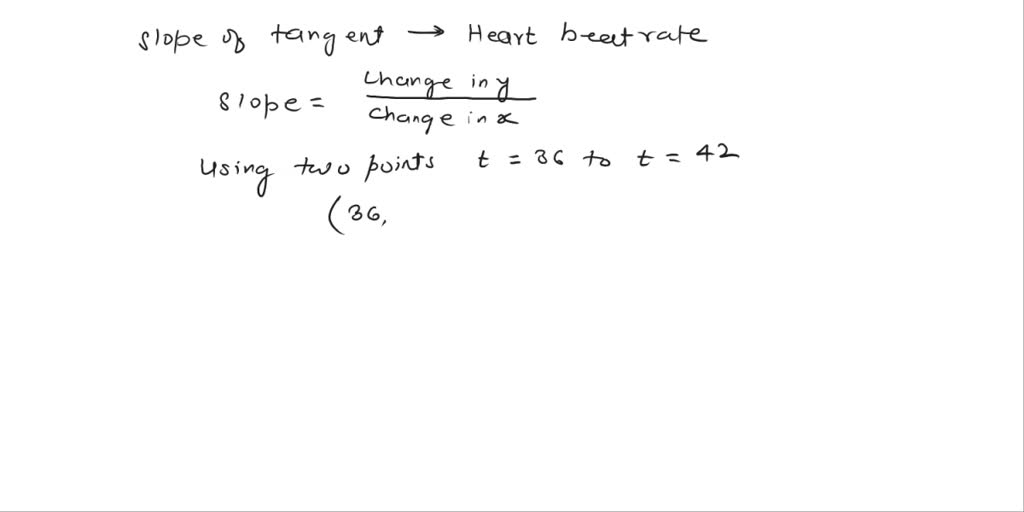 slope of tangent → Heart beat rate
slope = change in y / change in x
Using two points t = 36 to t = 42
(36,